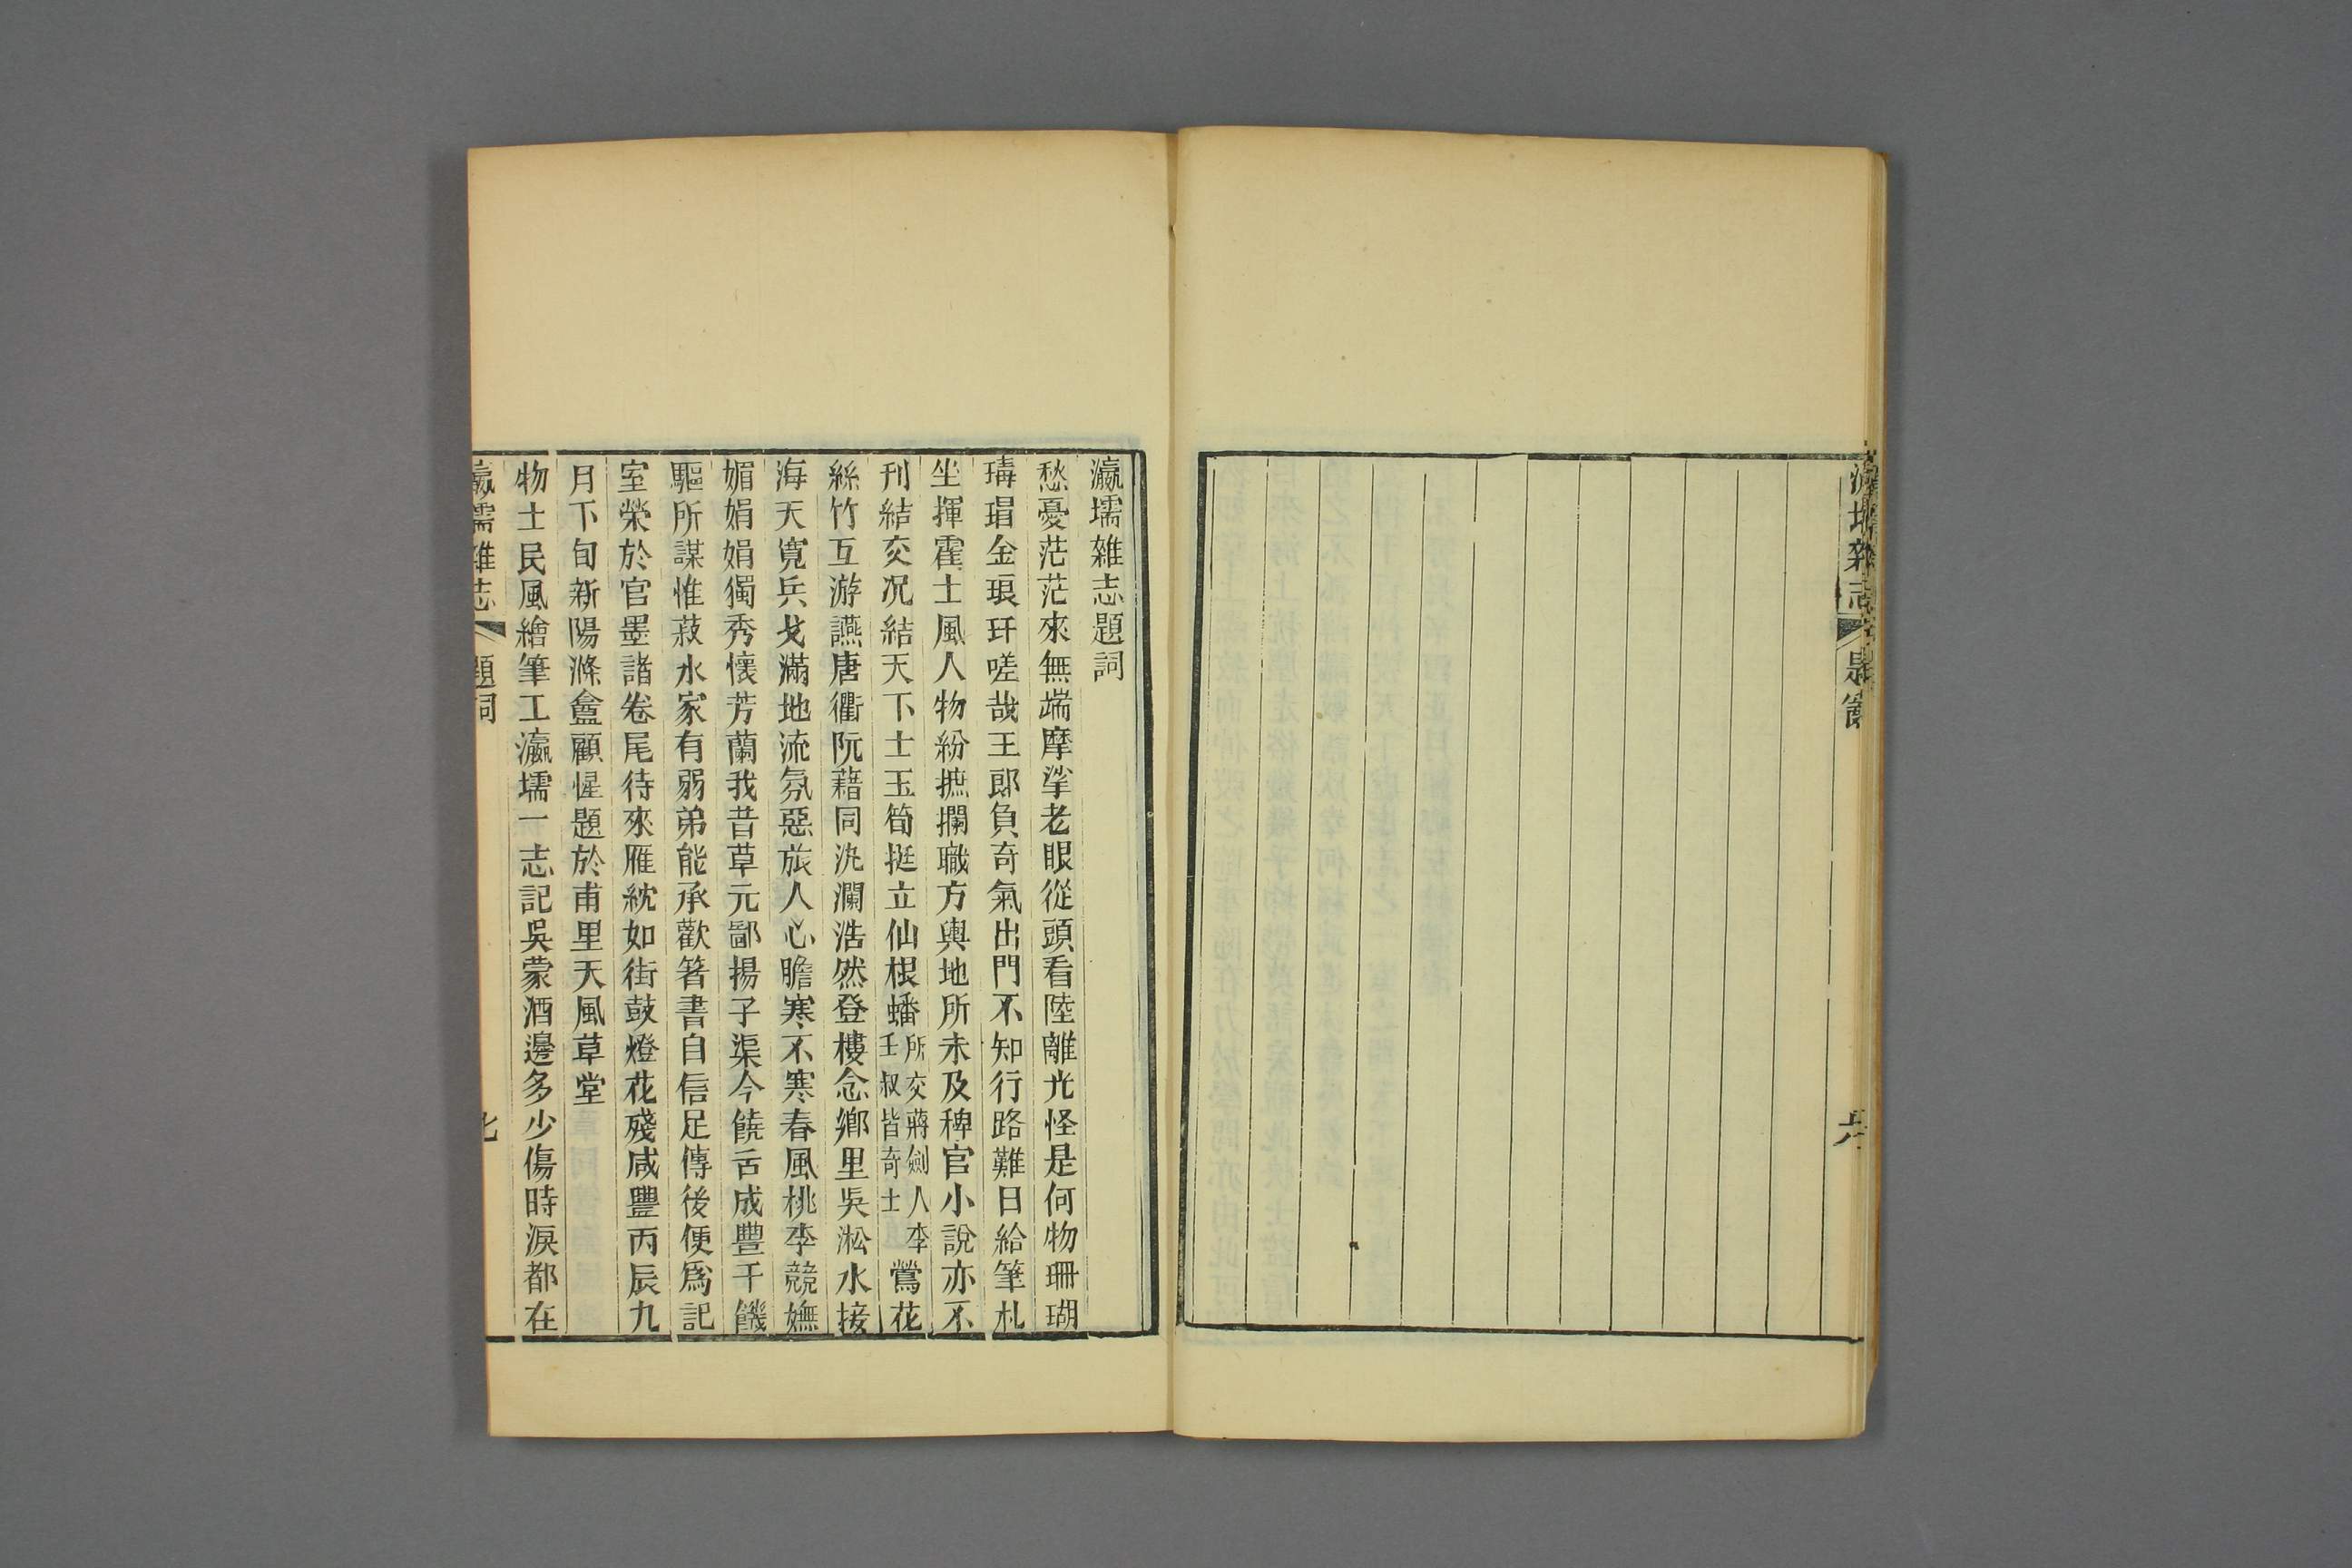 瀛壖雜志題詞
愁憂茫茫來無端摩挲老眼從頭看陸離光怪是何物珊瑚
瑇瑁金琅玕嗟哉王郎負奇氣出門不知行路難日給筆札
坐揮霍士風人物紛摭攔職方輿地所未及稗官小說亦不
刊結交況結天下士玉筍挺立仙根蟠所交蔣劍人李壬叔皆奇士鶯花
絲竹互游讌唐衢阮藉同汍瀾浩然登樓念鄉里吳淞水接
海天寬兵戈滿地流氛惡旅人心膽寒不寒春風桃李競嫵
媚娟娟獨秀懷芳蘭我昔草元鄙揚子渠今饒舌成豐干饑
驅所謀惟菽水家有弱弟能承歡箸書自信足傳後便爲記
室榮於官墨諸卷尾待來雁紞如街鼓燈花殘咸豐丙辰九
月下旬新陽滌盦顧惺題於甫里天風草堂
物土民風繪筆工瀛壖一志記吳蒙酒邊多少傷時淚都在
瀛壖雜志 題詞
七